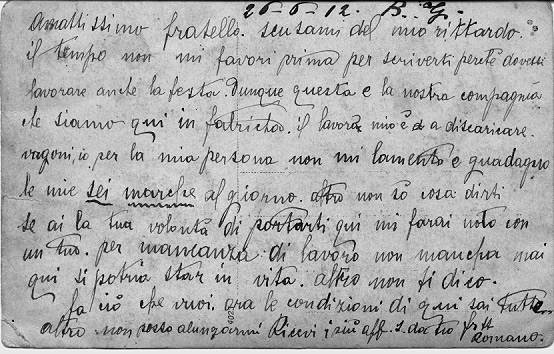 26-6-12. B. G.
Amattissimo fratello. scusami del mio rittardo.
il tempo non mi favori prima per scriverti perchè dovessi
lavorare anche la festa. Dunque questa e la nostra compagnia
che siamo qui in fabricha. il lavoro mio è a discaricare
vagoni, io per la mia persona non mi lamento e guadagno
le mie sei marche al giorno. altro non sò cosa dirti
se ai la tua volontà di portarti qui mi farai noto con
un tuo. per mancanza di lavoro non mancha mai
qui si potria star in vita. altro non ti dico.
fa ciò che vuoi. ora le condizioni di qui sai tutto
altro non posso alungarmi Ricevi i più aff. s. da tuo frtt
Romano.